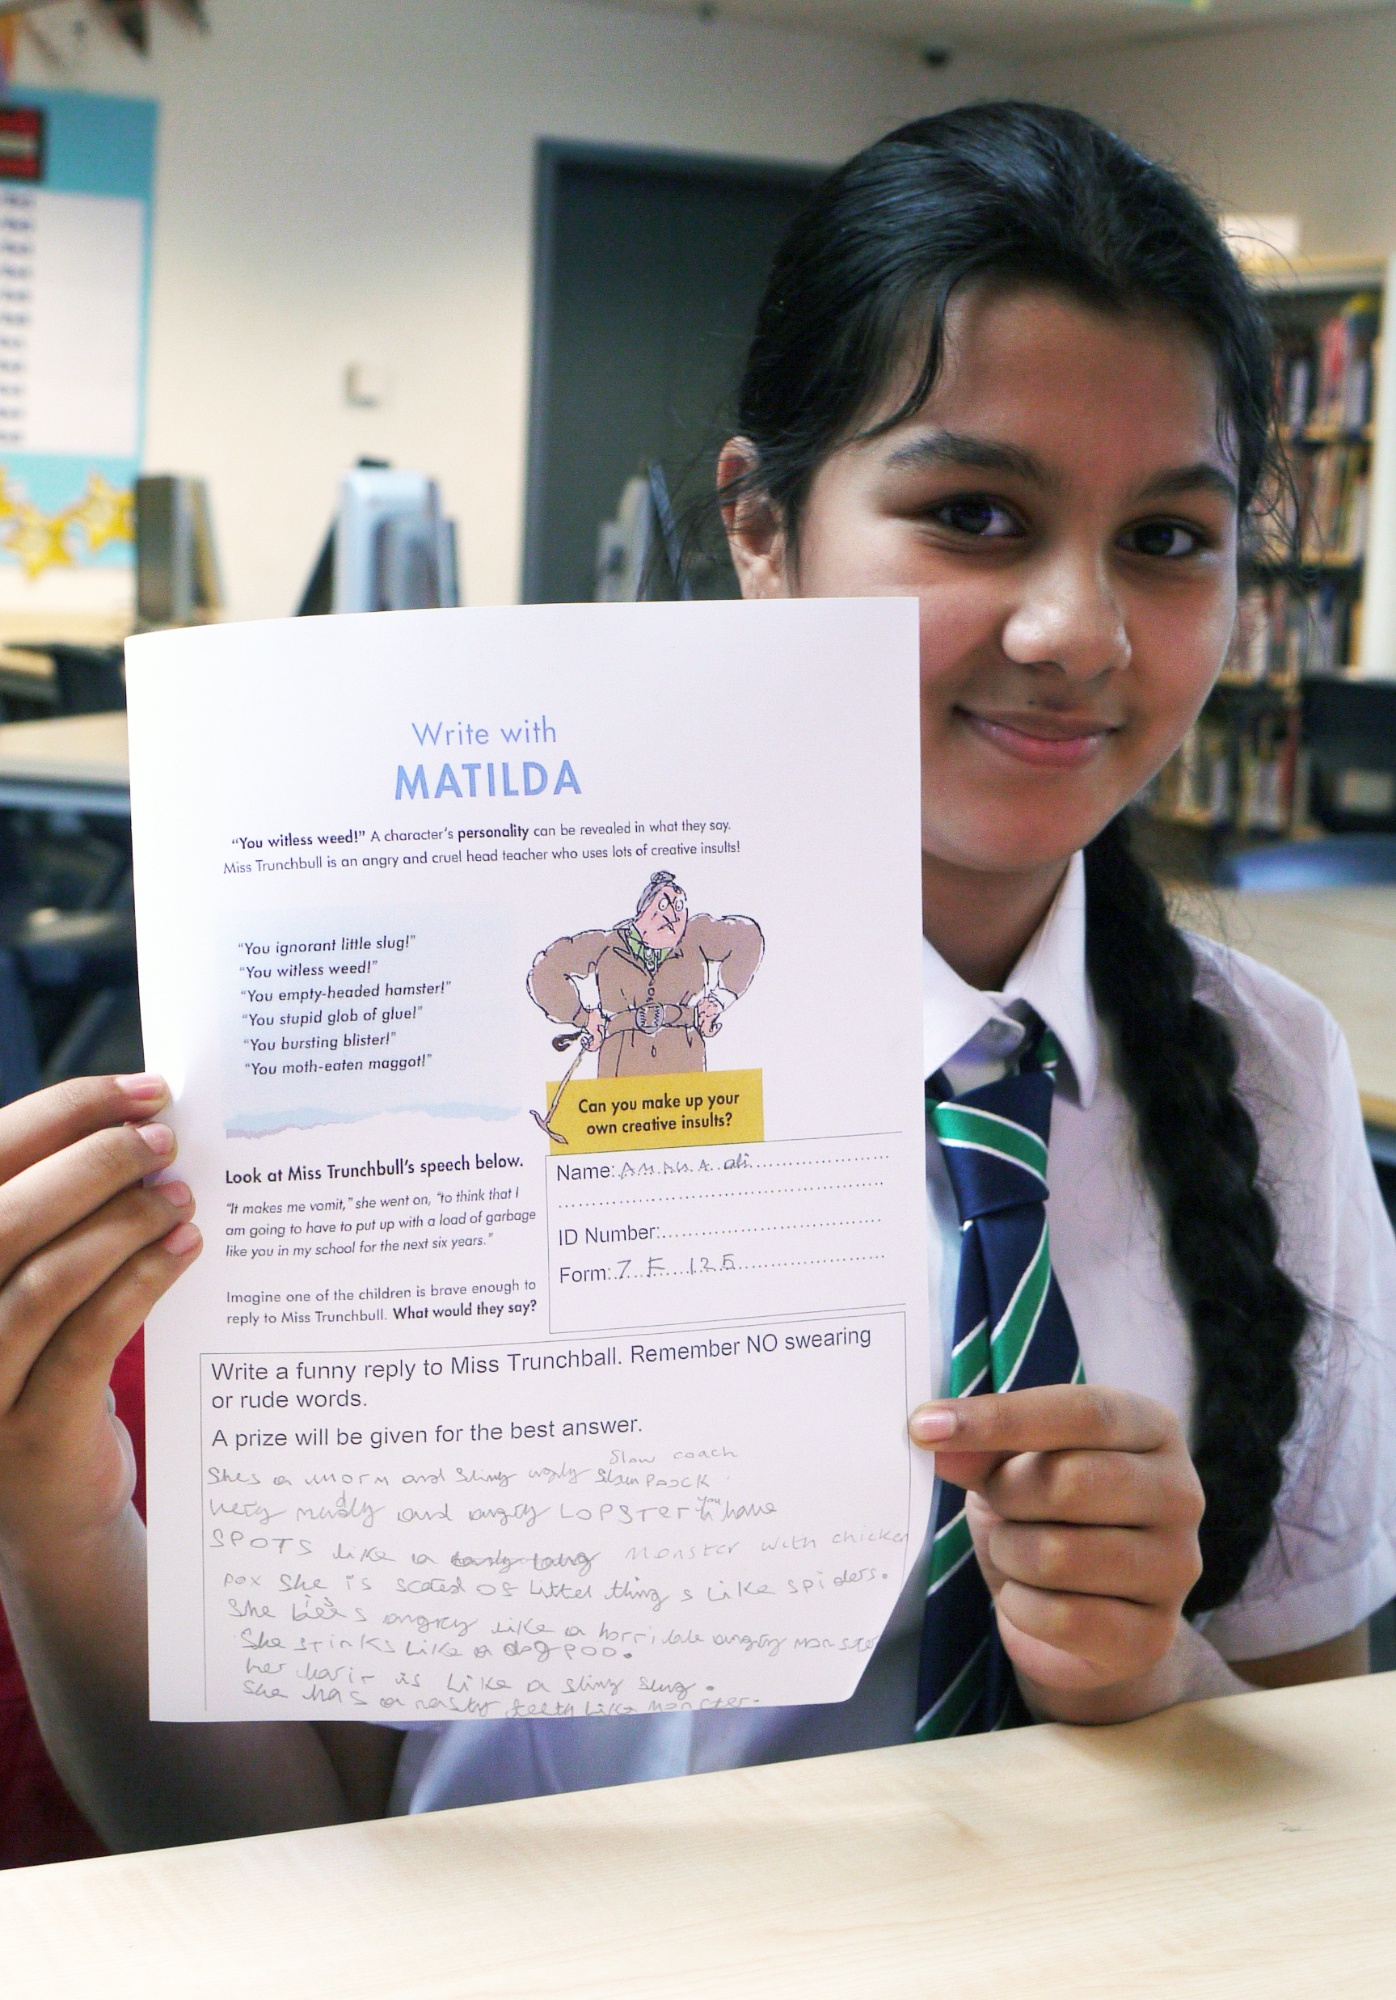 Write with
MATILDA
"You witless weed!" A character's personality can be revealed in what they say.
Miss Trunchbull is an angry and cruel head teacher who uses lots of creative insults!
"You ignorant little slug!"
"You witless weed!"
"You empty-headed hamster!"
"You stupid glob of glue!"
"You bursting blister!"
"You moth-eaten maggot!"
Can you make up your
own creative insults?
Look at Miss Trunchbull's speech below.
"It makes me vomit," she went on, "to think that I
am going to have to put up with a load of garbage
like you in my school for the next six years."
Imagine one of the children is brave enough to
reply to Miss Trunchbull. What would they say?
Name: ali
ID Number:
Form: 7
Write a funny reply to Miss Trunchball. Remember NO swearing
or rude words.
A prize will be given for the best answer.
Slow coach
Shes a worm and sliny ugly
very and angry LOPSTER you have
SPOTS like a monster with chicken
pox She is scated of littel thing s Like spiders.
She is angrey like a horrible angry monster
She stinks Like a dog poo.
her hair is Like a sliny
she has a nasty teeth like monster.